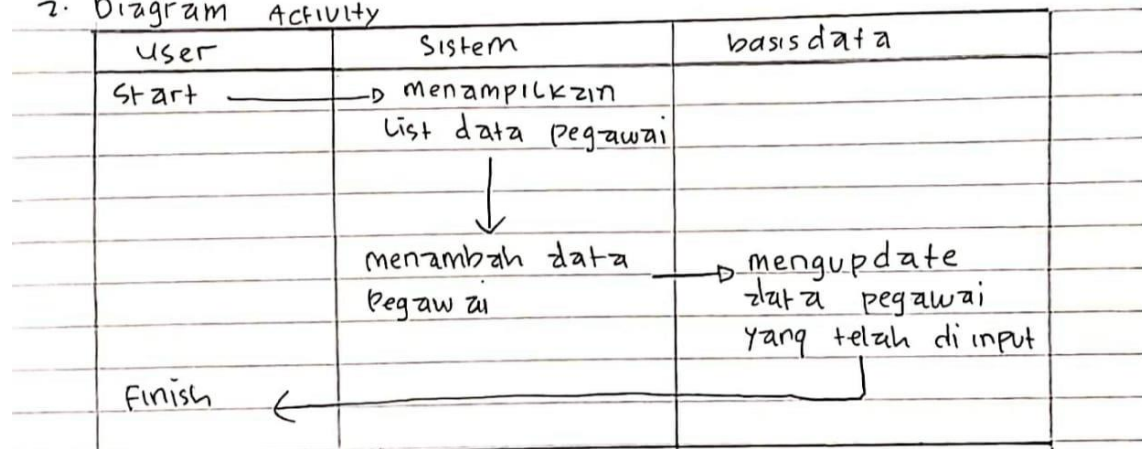 2. Diagram Activity
User Sistem basis data
Start menampilkan
List data pegawai
menambah data mengupdate
Pegawai data pegawai
yang telah di input
Finish